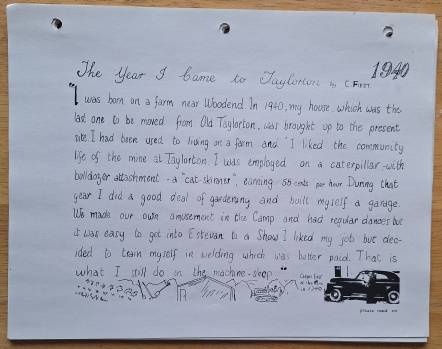 1940
The Year I Came to Taylorton by C. FIRST.
"I was born on a farm near Woodend. In 1940, my house, which was the
last one to be moved from Old Taylorton, was brought up to the present
site. I had been used to living on a farm and I liked the community
life of the mine at Taylorton. I was employed on a caterpillar-with
bulldozer attachment - a "cat-skinner", earning 55 cents per hour. During that
year I did a good deal of gardening and built myself a garage.
We made our own amusement in the Camp and had regular dances but
it was easy to get into Estevan to a Show. I liked my job but dec-
ided to train myself in welding which was better paid. That is
what I still do in the machine-shop."
First
in 1940
please read on